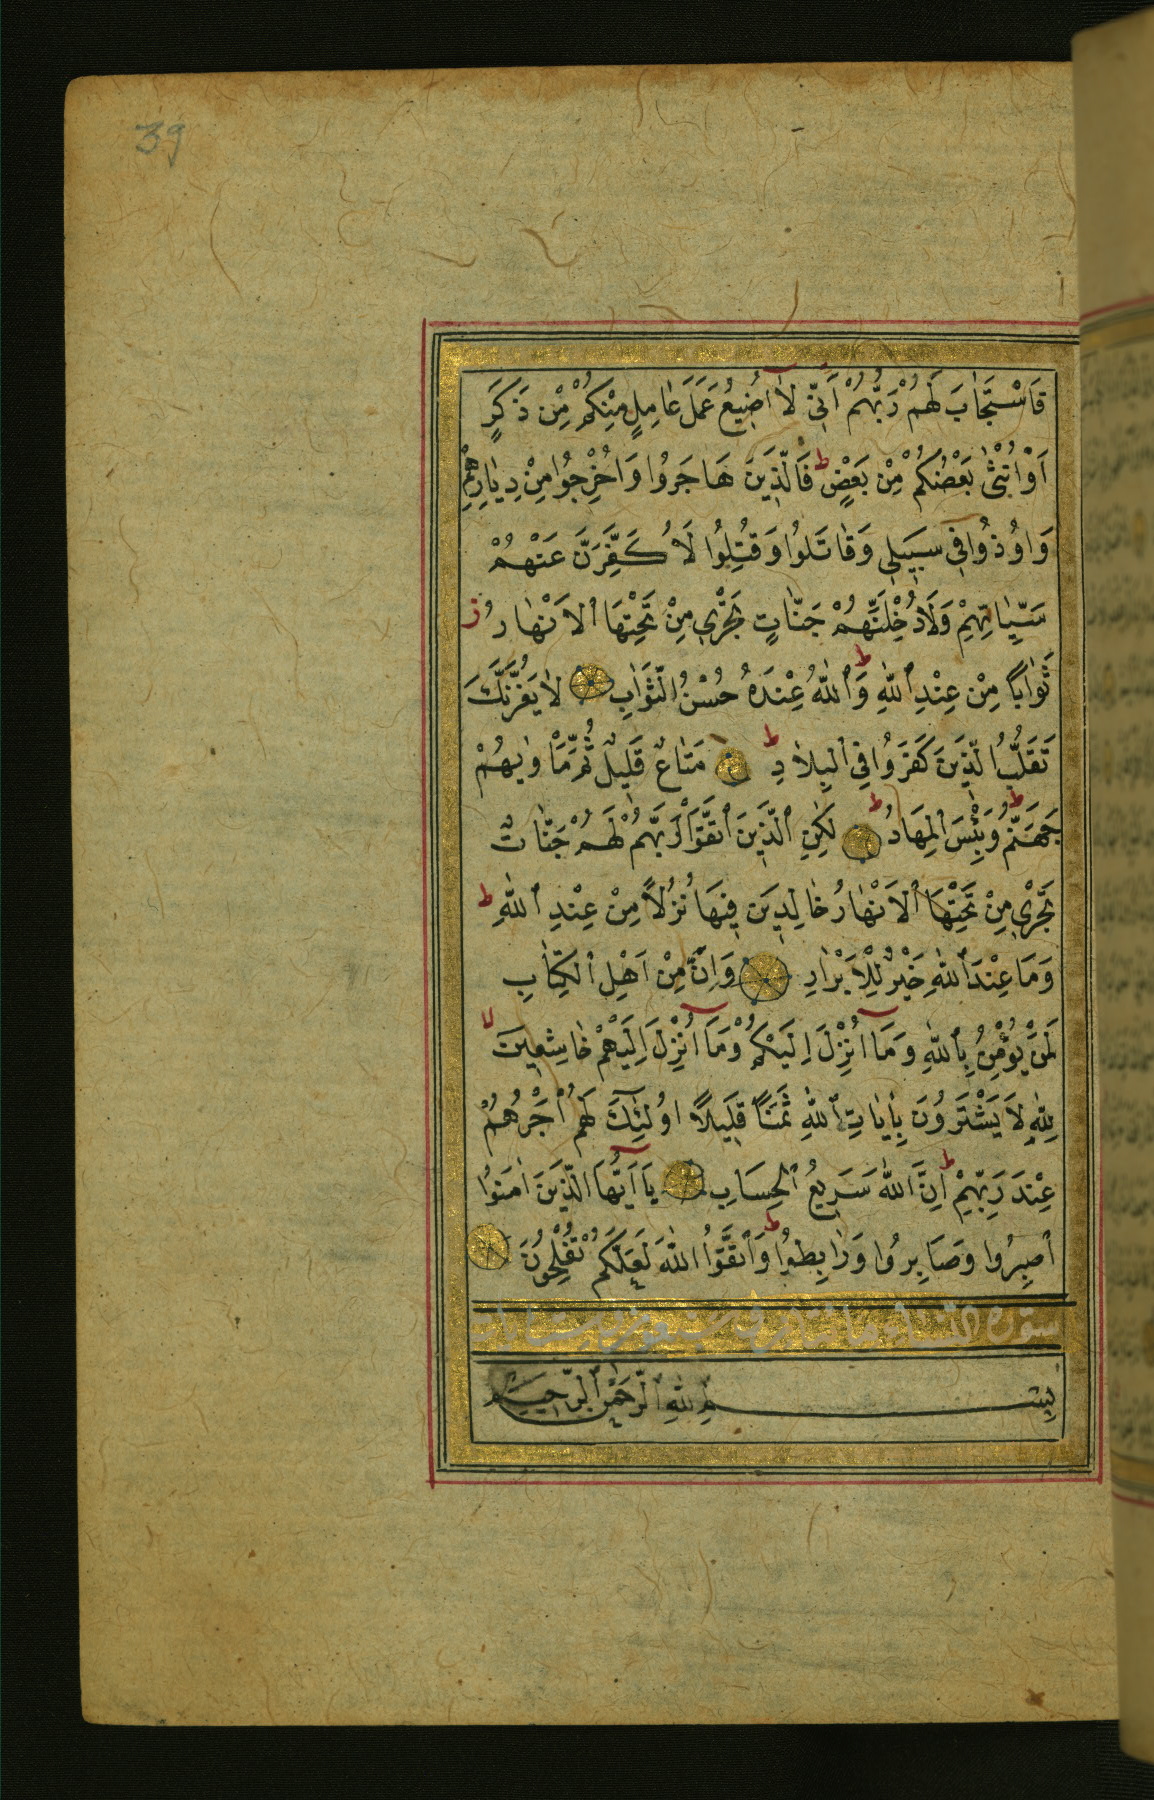 39
فَاسْتَجَابَ لَهُمْ رَبُّهُمْ اَنّٖى لَا اُضٖيعُ عَمَلَ عَامِلٍ مِنْكُمْ مِنْ ذَكَرٍ
اَوْ اُنْثٰى بَعْضُكُمْ مِنْ بَعْضٍ ط فَالَّذٖينَ هَاجَرُوا وَاُخْرِجُوا مِنْ دِيَارِهِمْ
وَاُوذُوا فٖى سَبٖيلٖى وَقَاتَلُوا وَقُتِلُوا لَاُكَفِّرَنَّ عَنْهُمْ
سَيِّاٰتِهِمْ وَلَاُدْخِلَنَّهُمْ جَنَّاتٍ تَجْرٖى مِنْ تَحْتِهَا الْاَنْهَارُ ز
ثَوَابًا مِنْ عِنْدِ اللّٰهِ ط وَاللّٰهُ عِنْدَهُ حُسْنُ الثَّوَابِ لَا يَغُرَّنَّكَ
تَقَلُّبُ الَّذٖينَ كَفَرُوا فِى الْبِلَادِ ط مَتَاعٌ قَلٖيلٌ ثُمَّ مَاْوٰيهُمْ
جَهَنَّمُ ط وَبِئْسَ الْمِهَادُ ط لٰكِنِ الَّذٖينَ اتَّقَوْا رَبَّهُمْ لَهُمْ جَنَّاتٌ
تَجْرٖى مِنْ تَحْتِهَا الْاَنْهَارُ خَالِدٖينَ فٖيهَا نُزُلًا مِنْ عِنْدِ اللّٰهِ ط
وَمَا عِنْدَ اللّٰهِ خَيْرٌ لِلْاَبْرَارِ وَاِنَّ مِنْ اَهْلِ الْكِتَابِ
لَمَنْ يُؤْمِنُ بِاللّٰهِ وَمَا اُنْزِلَ اِلَيْكُمْ وَمَا اُنْزِلَ اِلَيْهِمْ خَاشِعٖينَ لا
لِلّٰهِ لَا يَشْتَرُونَ بِاٰيَاتِ اللّٰهِ ثَمَنًا قَلٖيلًا اُولٰئِكَ لَهُمْ اَجْرُهُمْ
عِنْدَ رَبِّهِمْ ط اِنَّ اللّٰهَ سَرٖيعُ الْحِسَابِ يَا اَيُّهَا الَّذٖينَ اٰمَنُوا
اصْبِرُوا وَصَابِرُوا وَرَابِطُوا ط وَاتَّقُوا اللّٰهَ لَعَلَّكُمْ تُفْلِحُونَ
سورة النساء
بِسْمِ اللّٰهِ الرَّحْمٰنِ الرَّحٖيمِ